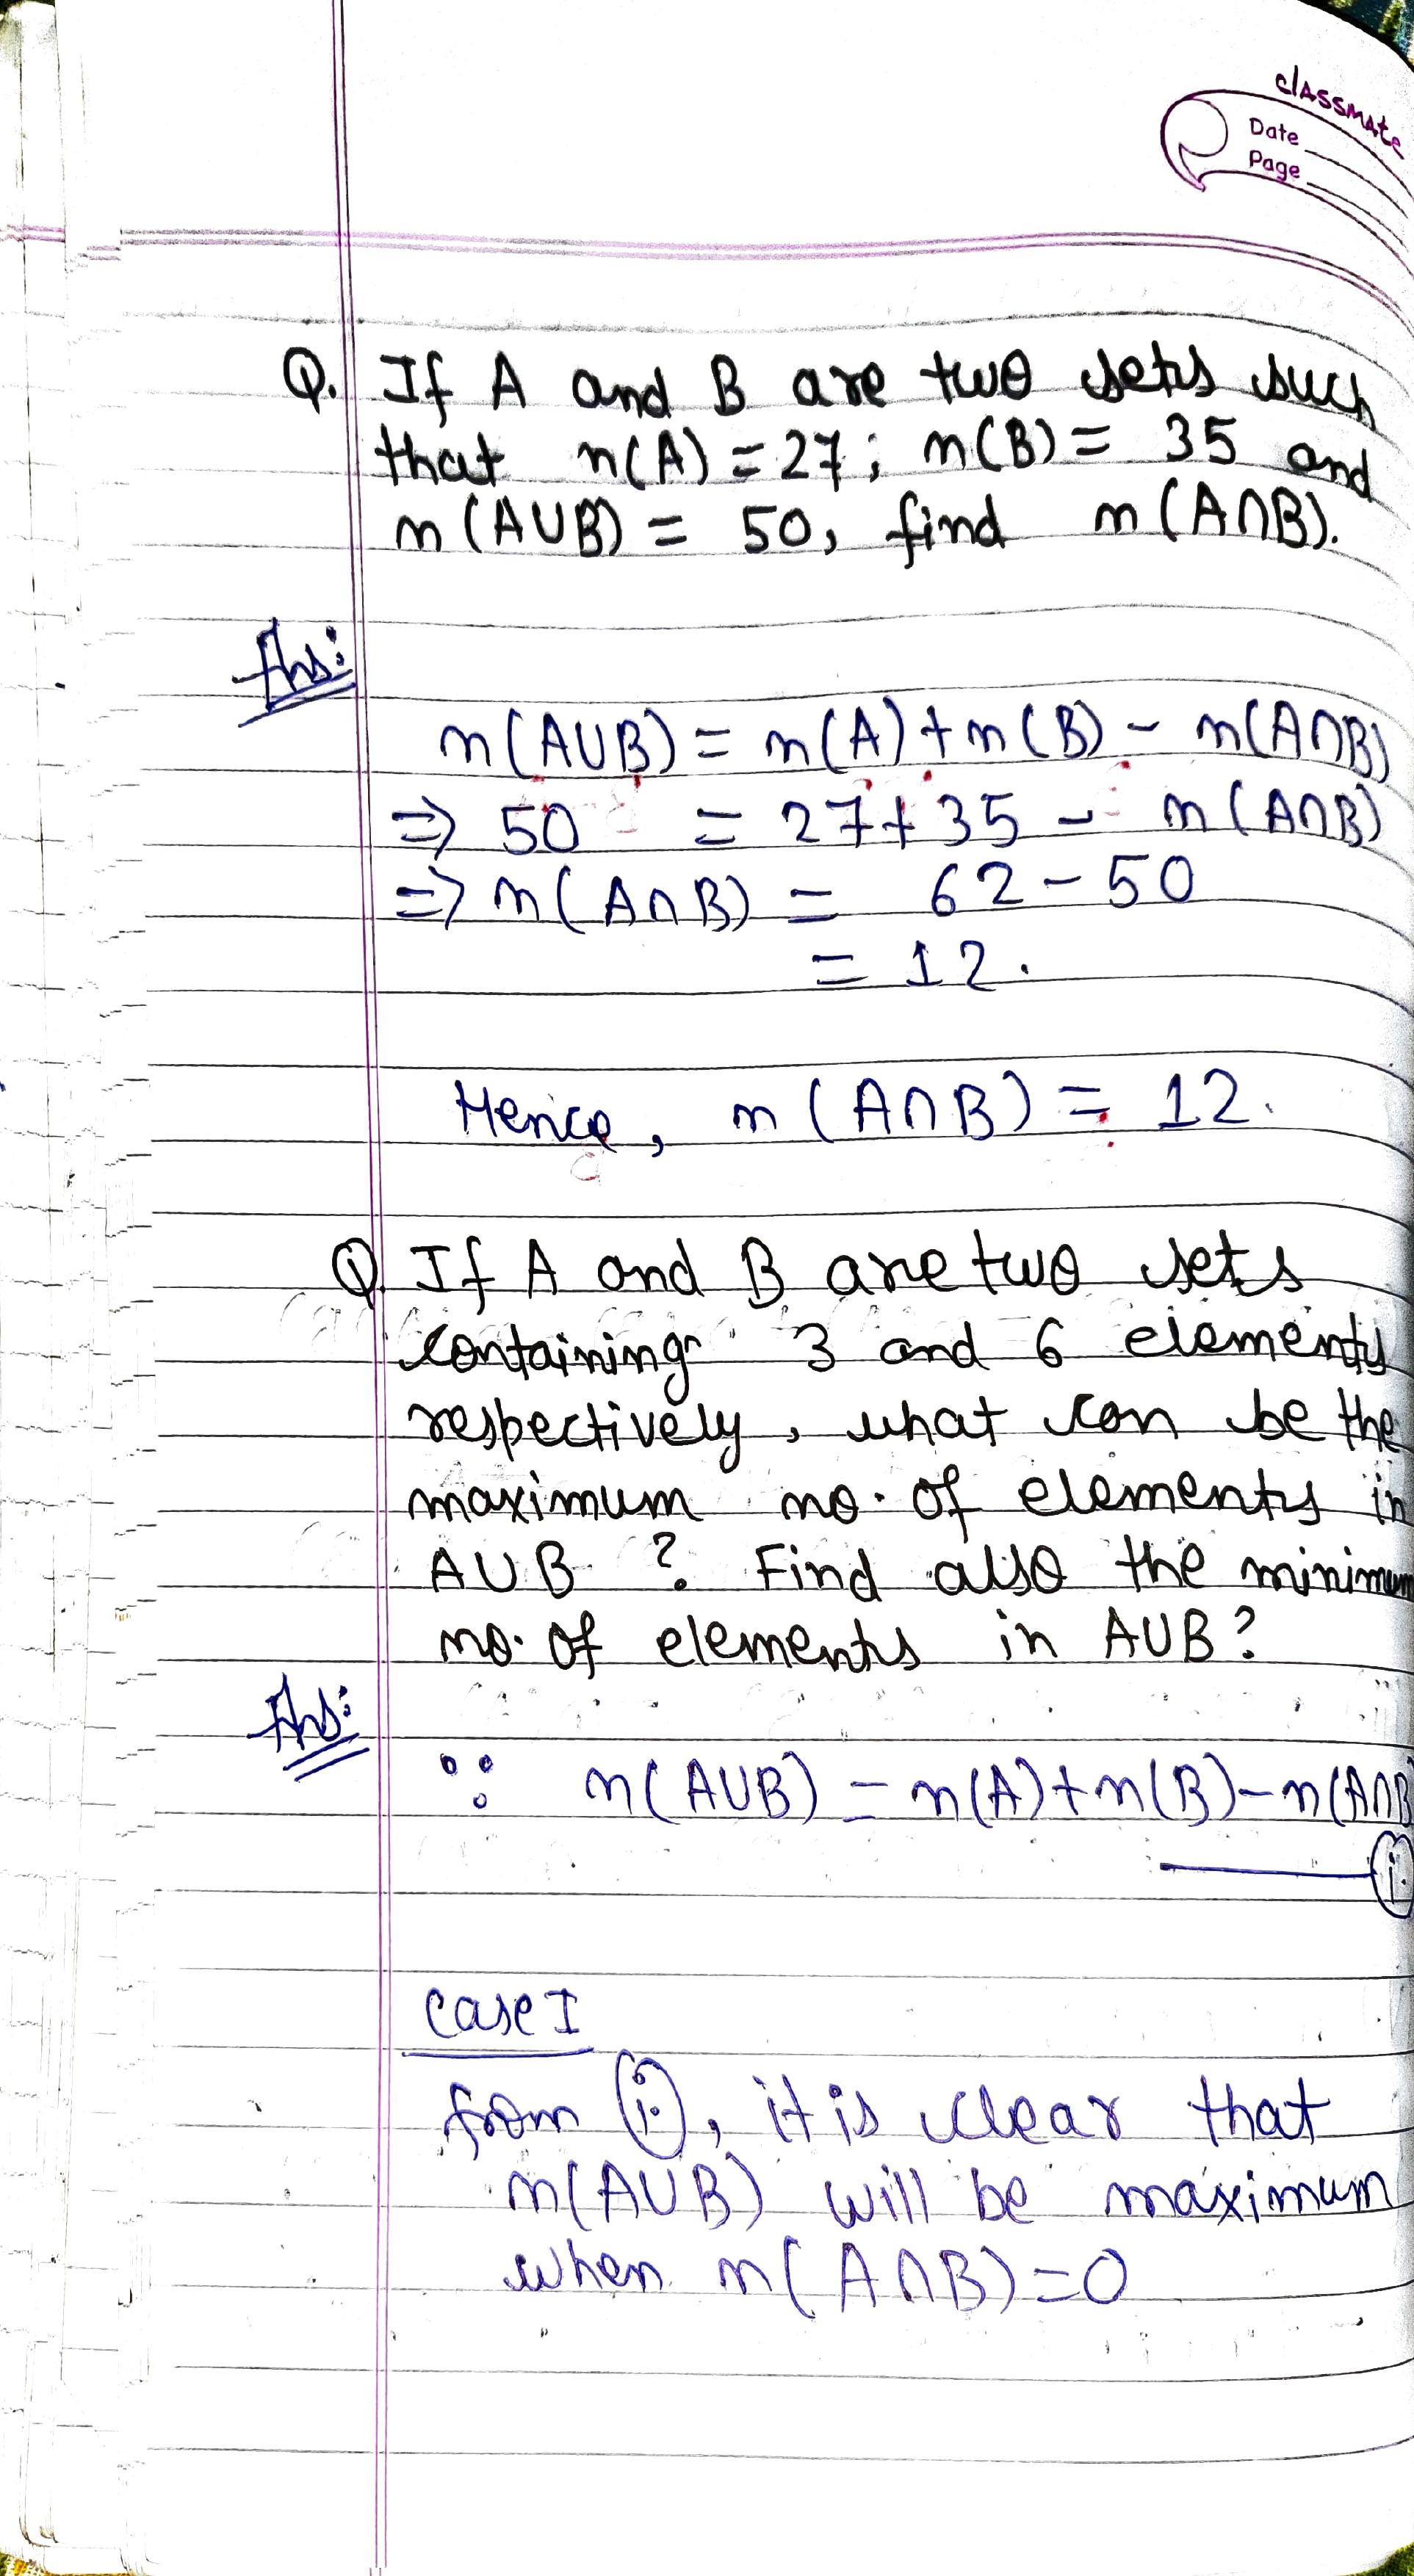 classmate
Date
Page
Q. If A and B are two sets such
that n(A) = 27; n(B) = 35 and
n(A∪B) = 50, find n(A∩B).
Ans:
n(A∪B) = n(A) + n(B) - n(A∩B)
⇒ 50 = 27 + 35 - n(A∩B)
⇒ n(A∩B) = 62 - 50
= 12.
Hence, n(A∩B) = 12.
Q. If A and B are two sets
containing 3 and 6 elements
respectively, what can be the
maximum no. of elements in
A∪B ? Find also the minimum
no. of elements in A∪B?
Ans:
∵ n(A∪B) = n(A) + n(B) - n(A∩B)
(i)
Case I
from (i), it is clear that
n(A∪B) will be maximum
when n(A∩B) = 0